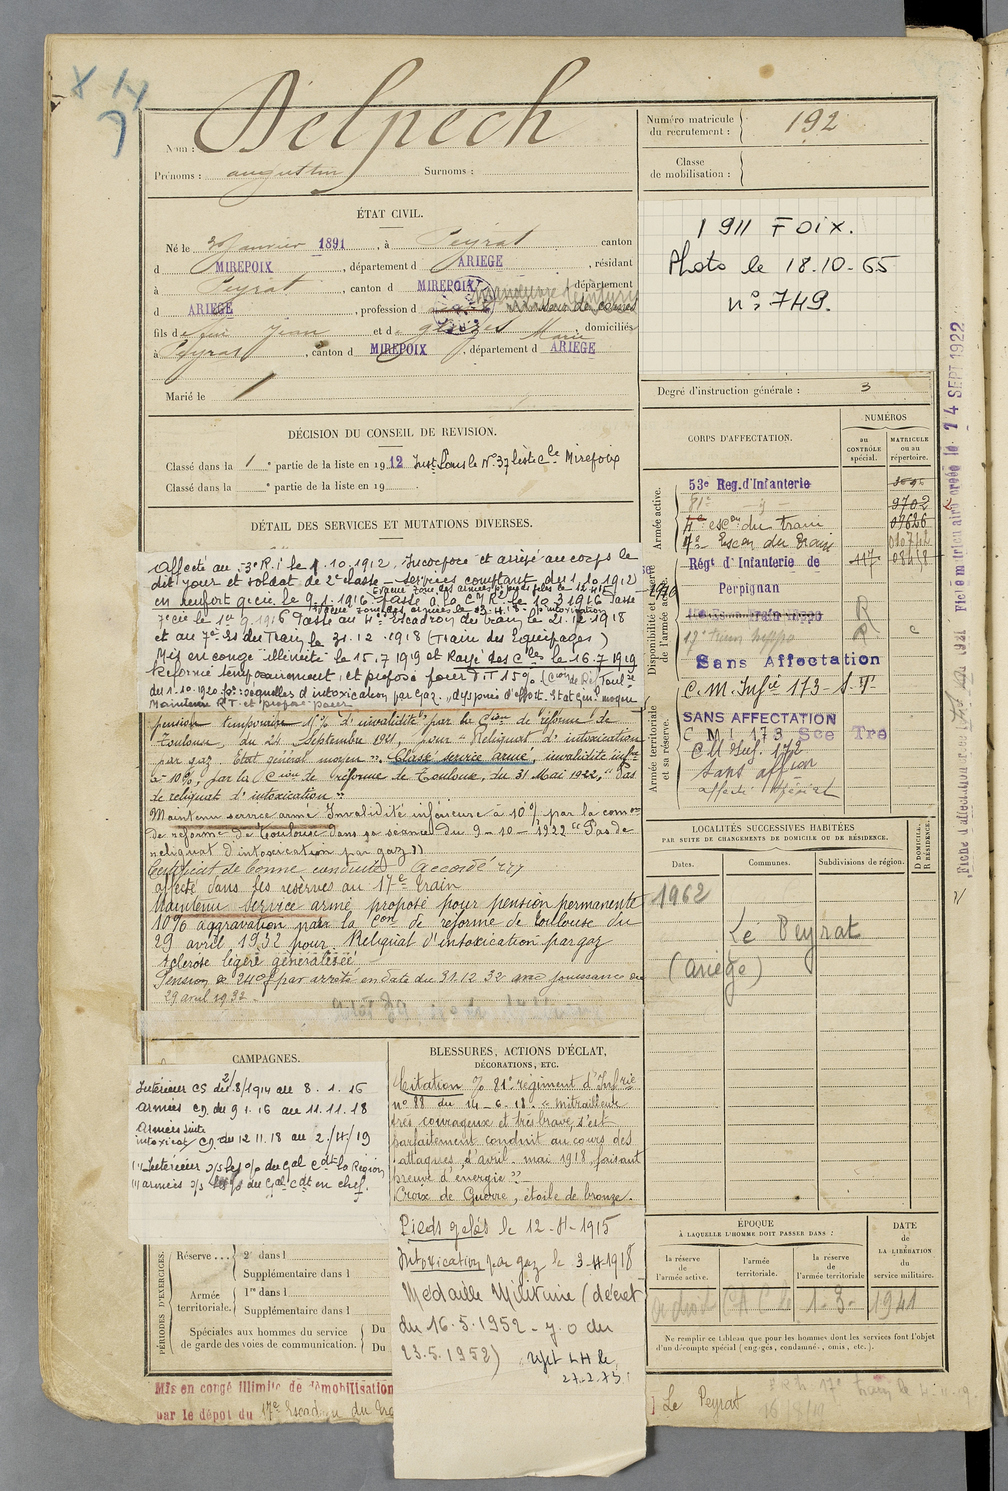 Delpech
Nom :
Prénoms : augustin Surnoms :
Numéro matricule
du recrutement : 192
Classe
de mobilisation :
1911 FOIX.
Photo le 18.10.65
n° 749.
ÉTAT CIVIL.
Né le janvier 1891, à Peyrat canton
d MIREPOIX, département d ARIEGE, résidant
à Peyrat, canton d MIREPOIX, département
d ARIEGE, profession d
fils de feu Jean et de glizes Marie, domiciliés
à Peyrat, canton d MIREPOIX, département d ARIEGE
Marié le
Degré d'instruction générale : 3
DÉCISION DU CONSEIL DE REVISION.
Classé dans la 1e partie de la liste en 1912 Inst Sous le N° 37 liste Cle Mirepoix
Classé dans la e partie de la liste en 19
DÉTAIL DES SERVICES ET MUTATIONS DIVERSES.
Affecté au R.I le 1.10.1912, Incorporé et arrivé au corps le
dit jour et soldat de 2e classe – Services comptant du 1.10.1912
en renfort 9e cie le 9.1.1916 Passé à la Cie le 10.3.1916 Passé
7e cie le 1er 9.1916 Passé au 4e Escadron du Train le 21.12.1918
et au 7e Es du Train le 31.12.1918 (Train des Equipages)
Mis en congé illimité le 15.7.1919 et Rayé des Cles le 16.7.1919
Réformé temporairement, et proposé pour P.T 15%
du 1.10.1920 pr. séquelles d'intoxication par gaz, dyspnée d'effort. Etat génl moyen
Maintenu R.T. et proposé pour
pension temporaire 15% d'invalidité par la Cion de réforme de
Toulouse, du 24 Septembre 1921, pour "Reliquat d'intoxication
par gaz. Etat général moyen", Classé service armé, invalidité infre
à 10%, par la Cion de réforme de Toulouse, du 31 Mai 1922, "Pas
de reliquat d'intoxication".
Maintenu service armé Invalidité inférieure à 10% par la comon
de réforme de Toulouse dans sa séance du 9-10-1922 "Pas de
reliquat d'intoxication par gaz"
Certificat de bonne conduite Accordé
affecté dans les réserves au 17e Train
Maintenu service armé proposé pour pension permanente
10% aggravation par la Con de réforme de Toulouse du
29 avril 1932 pour Reliquat d'intoxication par gaz
Sclérose légère généralisée
Pension de 240f par arrêté en date du 31.12.32 avec jouissance du
29 avril 1932.
CORPS D'AFFECTATION.
NUMÉROS
au
CONTRÔLE
spécial.
MATRICULE
ou au
répertoire.
Armée active.
53e Reg. d'Infanterie
81e 9702
4e escon du train 07626
7e Escon du Train
Disponibilité et réserve
de l'armée active.
Régt d'Infanterie de 117 08418
Perpignan
17e train hippo
Sans Affectation
C. M. Infie 173 - S.T.
Armée territoriale
et sa réserve.
SANS AFFECTATION
C M I 173 Sce Tre
CM Inf. 172
Sans affon
affecté spécial
Fiche d'affectation
Fiche matriculaire créée le 14 SEPT 1922
LOCALITÉS SUCCESSIVES HABITÉES
PAR SUITE DE CHANGEMENTS DE DOMICILE OU DE RÉSIDENCE.
Dates.
Communes.
Subdivisions de région.
D DOMICILE.
R RÉSIDENCE.
1962
Le Peyrat
(Ariège)
CAMPAGNES.
Intérieur CS du 2/8/1914 au 8.1.16
Armées CD. du 9 1.16 au 11.11.18
Armées suite
intoxicat CD. du 12 11.18 au 2/4/19
(1) Intérieur o/s les o/p du Gal Cdt la Région
(1) armées o/s les o/s du Gal Cdt en chef.
BLESSURES, ACTIONS D'ÉCLAT,
DÉCORATIONS, ETC.
Citation % 81e régiment d'Infrie
n° 88 du 14-6-18. "Mitrailleur
très courageux et très brave, s'est
parfaitement conduit au cours des
attaques, d'avril-mai 1918, faisant
preuve d'énergie"
Croix de Guerre, étoile de bronze.
Pieds gelés le 12-4-1915
Intoxication par gaz le 3-4-1918
Médaille Militaire (décret
du 16.5.1952 - J.O du
23.5.1952)
PÉRIODES D'EXERCICES.
Réserve ... 2e dans l
Supplémentaire dans l
Armée
territoriale. 1re dans l
Supplémentaire dans l
Spéciaux aux hommes du service
de garde des voies de communication. Du
Du
ÉPOQUE
À LAQUELLE L'HOMME DOIT PASSER DANS :
la réserve
de
l'armée active.
l'armée
territoriale.
la réserve
de
l'armée territoriale
DATE
de
LA LIBÉRATION
du
service militaire.
1941
Ne remplir ce tableau que pour les hommes dont les services font l'objet
d'un décompte spécial (engagés, condamnés, omis, etc.).
Mis en congé illimité de démobilisation
par le dépôt du 17e Escadron du
Le Peyrat